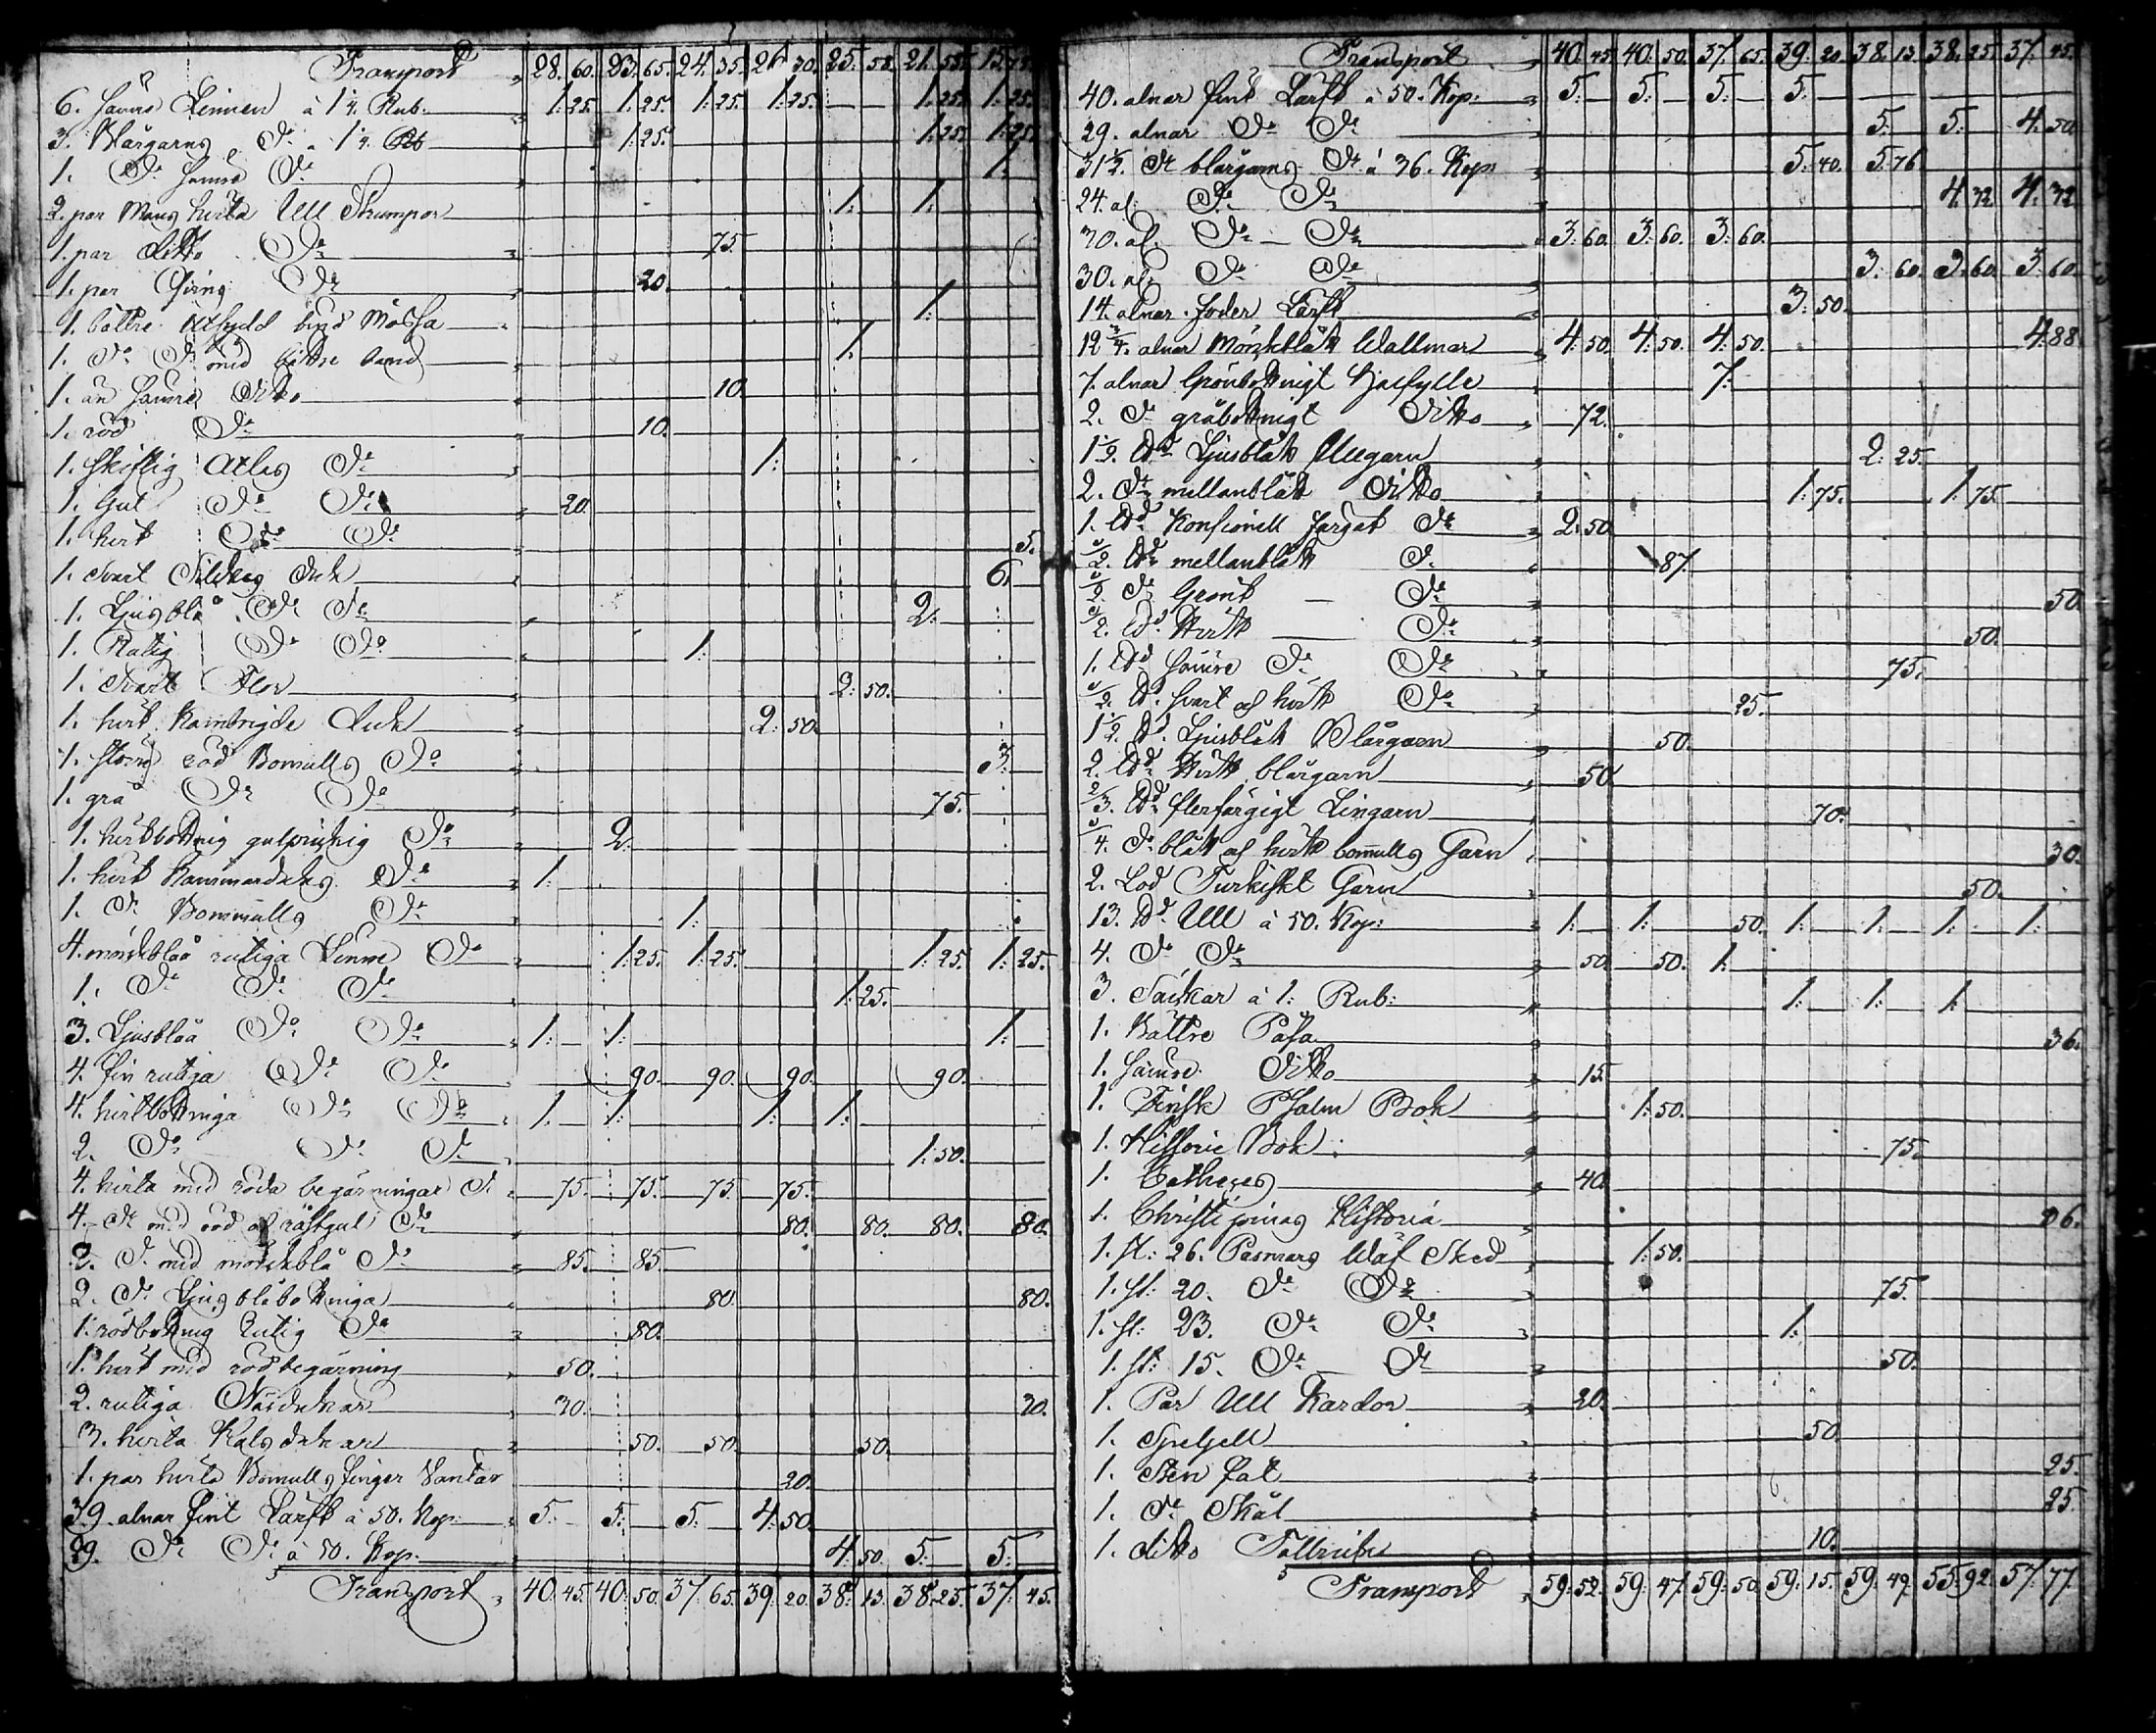 Transport 28. 60. 23. 65. 24. 35. 26. 70. 25. 58. 21. 55. 15.
6. sämre Linnen à 1 1/4. Rub: 1: 25. 1: 25. 1: 25. 1: 25. 1: 25. 1: 25.
3. Blårgarns Do 1 1/4. Rb 1: 25. 1: 25. 1: 25.
1. Do sämre Do 1:
2. par Mans hvita Ull Strumpor 1: 1:
1. par ditto Do 75.
1. par Do 20.
1. bättre utsydd bind Mössa 1:
1. Do Do med bättre band 1:
1. än sämre ditto 10.
1. röd Do 10.
1. skiftig Atlas Do 1:
1. Gul Do Do 20.
1. hvit Do Do 5.
1. Svart Silkes Duk 6.
1. Ljusblå Do Do 2.
1. Rutig Do Do 1.
1. Svart Flor 2: 50.
1. hvit Kambrigde Duk 2: 50.
1. större röd Bomulls Do 3.
1. grå Do Do 75.
1. hvitbottnig gulprickig Do 2.
1. hvit Kammarduks Do 1.
1. Do Bommulls Do 1:
4. mörkblåa rutiga Linne Do 1: 25. 1: 25. 1: 25. 1: 25.
1. Do Do Do 1: 25.
3. Ljusblåa Do Do 1: 1: 1:
4. fin rutiga Do Do 90. 90. 90. 90.
4. hvitbottniga Do Do 1. 1: 1: 1:
2. Do Do Do 1: 50.
4. hvita med röda begärningar Do 75. 75. 75. 75.
4. Do med röd af råstgul Do 80. 80. 80. 80.
2. Do med mörkblå Do 85. 85.
2. Do Ljusblåbottniga 80. 80.
1. rödbottnig Rutig Do 80.
1. hvit med röd begärning 50.
2. rutiga Näsdukar 30. 30.
3. hvita Halsdukar 50. 50. 50.
1. par hvita Bomulls finger Vantar 20.
39. alnar fint Lärft à 50. Kop: 5. 5. 5. 4: 50.
29. Do Do à 50. Kop. 4. 50. 5. 5.
Transport 40. 45. 40. 50. 37. 65. 39. 20. 38. 13. 38. 25. 37. 45.
Transport 40. 45. 40. 50. 37. 65. 39. 20. 38. 13. 38. 25. 37. 45.
40. alnar fint Lärft à 50. Kop: 5: 5. 5. 5.
29. alnar Do Do 5. 5. 4. 50.
31 1/2. Do blårgarns Do à 36. Kop: 5: 40. 5: 76.
24. al: Do Do 4. 32. 4. 32.
30. al. Do Do 3: 60. 3: 60. 3: 60.
30. al: Do Do 3: 60. 3. 60. 3: 60.
14. alnar foder Lärft 3: 50.
12 3/4. alnar Mörkblått Wallmar 4: 50. 4: 50. 4: 50. 4: 88.
7. alnar Grönbottnigt Hjelfylle 7:
2. Do gråbottnigt Ditto 72.
1 1/2. Ld Ljusblått Ullgarn 2: 25.
2. Do mellanblått Ditto 1: 75. 1: 75.
1. Ld Konsionell färgat Do 2: 50.
1/2. Ld mellanblått Do 87.
1/2. Do Grönt Do 50.
1/2. Ld Hvitt Do 50.
1. Ld sämre Do Do 75.
1/2. Ld svart af hvitt Do 25.
1 1/2. Ld Ljusblått Blårgarn 50.
2. Ld Hvitt blårgarn 50.
2/3. Ld flerfärgigt Lingarn 70.
1/4. Do blått af hvitt bomulls Garn 30.
2. Lod Turkiskt Garn 50.
13. Ld Ull à 50. Kop: 1: 1: 50. 1: 1: 1: 1:
4. Do Do 50. 50. 1:
3. Säckar à 1: Rub: 1: 1: 1:
1. Bättre Påsa 36.
1. sämre Ditto 15.
1. Finsk Psalm Bok 1: 50.
1. Historie Bok 75.
1. Catheges 40.
1. Christi pinas Historia 06.
1. st: 26. Pasmars Wäf Sked 1: 50.
1. st: 20. Do Do 75.
1. st: 23. Do Do 1:
1. st: 15. Do Do 50.
1. Par Ull Kardor 20.
1. Spelgell 50.
1. Sten fat 25.
1. Do Skål 25.
1. ditto Tallrik 10.
Transport 59: 52. 59: 47. 59: 50. 59: 15. 59: 49. 55: 92. 57: 77.